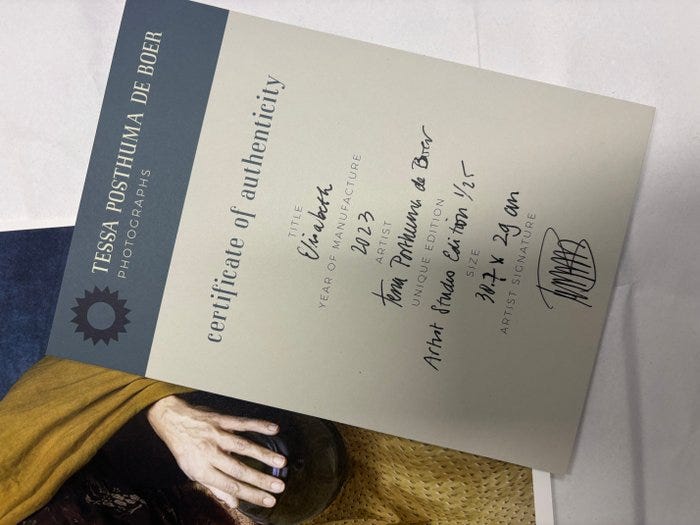 TESSA POSTHUMA DE BOER
PHOTOGRAPHS
certificate of authenticity
TITLE
Elisabeth
YEAR OF MANUFACTURE
2023
ARTIST
Tessa Posthuma de Boer
UNIQUE EDITION
Artist Studio Edition 1/25
SIZE
30.7 x 29 cm
ARTIST SIGNATURE